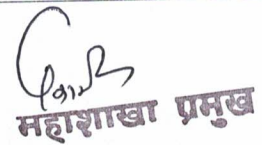 महाशाखा प्रमुख